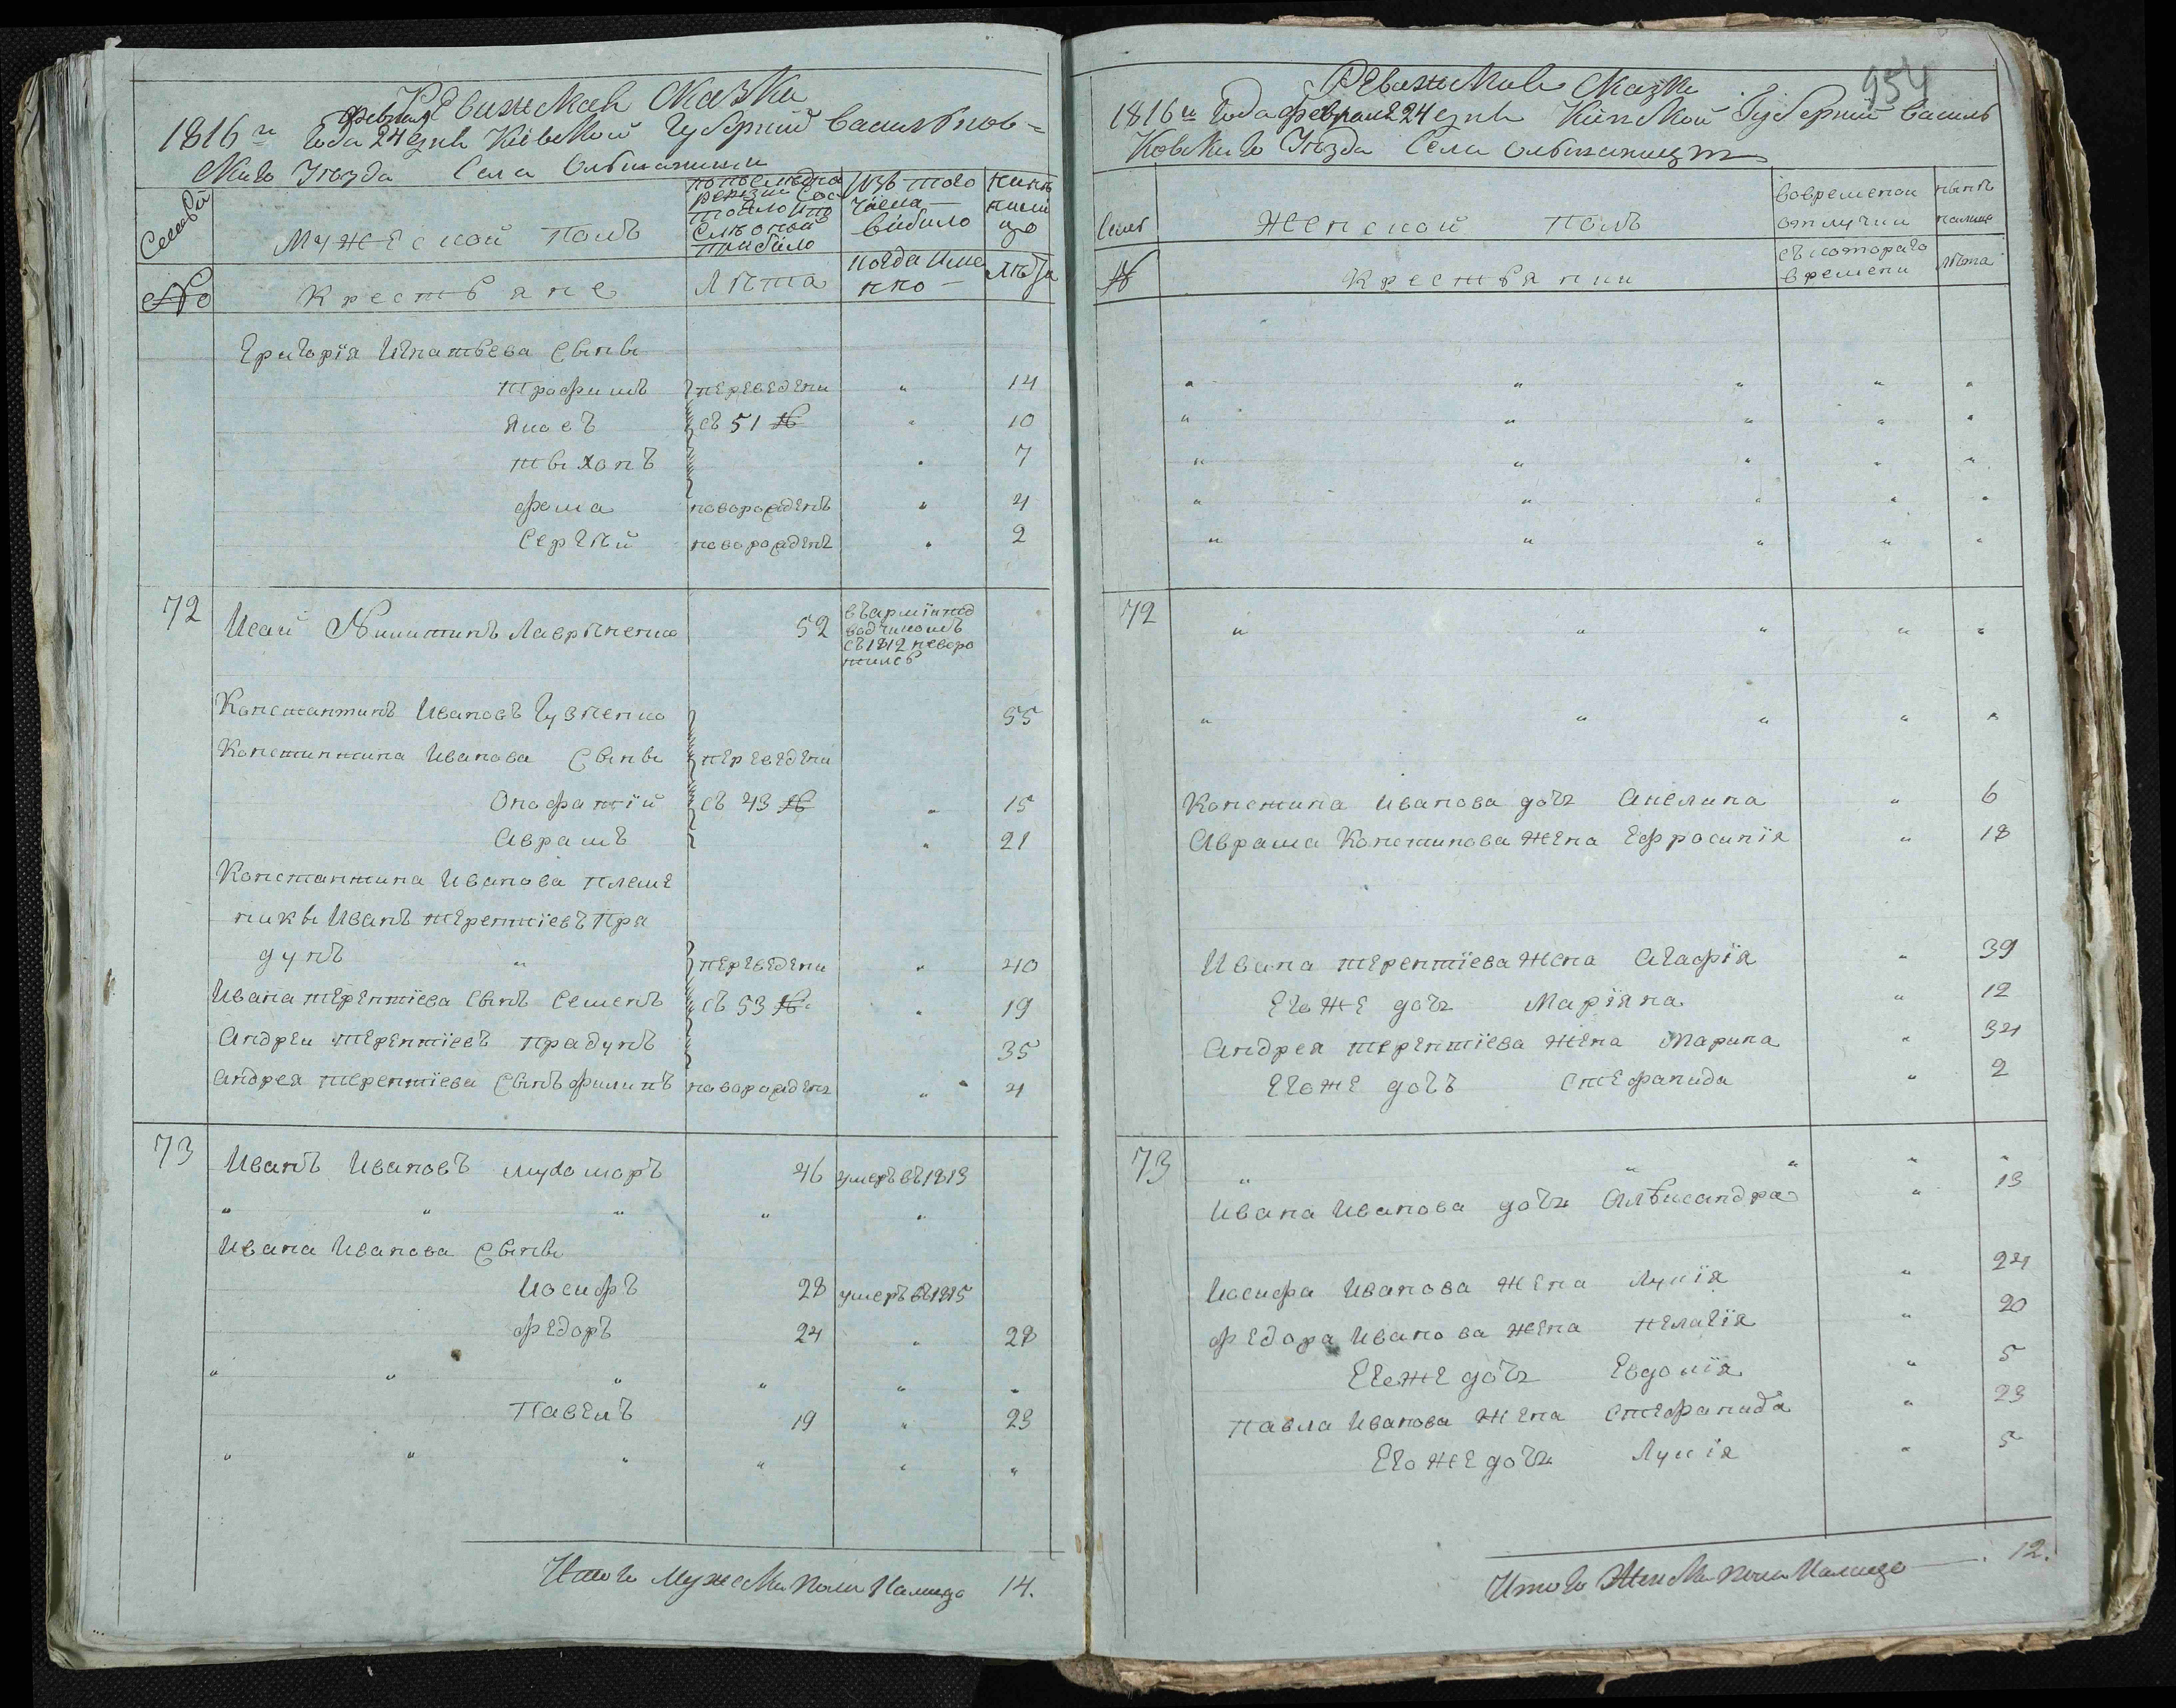 Ревижская Сказка
1816го Года февраля 24 дня Кіевской Губерніи Василков=
ского Уезда Села Ольшаници
Семей
№
Мужеской полъ
Крестьяне
по последней ревизіи состояло и после оной прибило
Лѣта
Изъ того числа вибило
когда именно
Нинѣ на лицо
Лѣта
Григорія Игнатьева Сыны
Трофимъ переведени " 14
Яковъ съ 51 № " 10
Тыхонъ " 7
Фома новорожденъ " 4
Сергій новорожденъ " 2
72 Исай Никитинъ Лаврыненко 52 въ арміи под водчикомъ съ 1812 неворотился
Константинъ Ивановъ Гузненко 55
Константина Иванова Сыны переведени
Онофрапій съ 43 № " 15
Аврамъ " 21
Константина Иванова племе
никы Иванъ терентіевъ Пра
дунъ " переведени " 40
Ивана терентіева Сынъ Семенъ съ 53 № " 19
Андреи терентіевъ прадунъ 35
Андрея терентіева Сынъ Филипъ новорожденъ " 4
73 Иванъ Ивановъ мухоморъ 46 умеръ въ 1813
" " " " "
Ивана Иванова Сыны
Иосифъ 28 умеръ въ 1815
Федоръ 24 " 28
" " " " " "
Павелъ 19 " 23
" " " " " "
Итого Мужеска пола Налицо 14.
954
Ревижская Сказка
1816го Года февраля 24 дня Кіевской Губерніи Василь
ковского Уезда Села Ольшаницъ
Семей
№
Женской Полъ
Крестьянки
Вовременой отлучки
съ котораго времени
нынѣ налице
лѣта
" " " " "
" " " " "
" " " " "
" " " " "
" " " " "
72 " " " " "
" " " " "
Констина Иванова дочь Акелина " 6
Аврама Констинова жена Ефросинія " 18
Ивана терентіева жена Агафія " 39
Егоже дочь Маріяна " 12
Андрея терентіева жена Марина " 34
Егоже дочъ Стефанида " 2
73 " " " " "
Ивана Иванова дочь Альксандра " 13
Иосифа Иванова жена Лукія " 24
Федора Иванова жена Пелагія " 20
Егоже дочь Евдокія " 5
Павла Иванова жена Стефанида " 23
Егоже дочь Лукія " 5
Итого Женска пола Налицо 12.